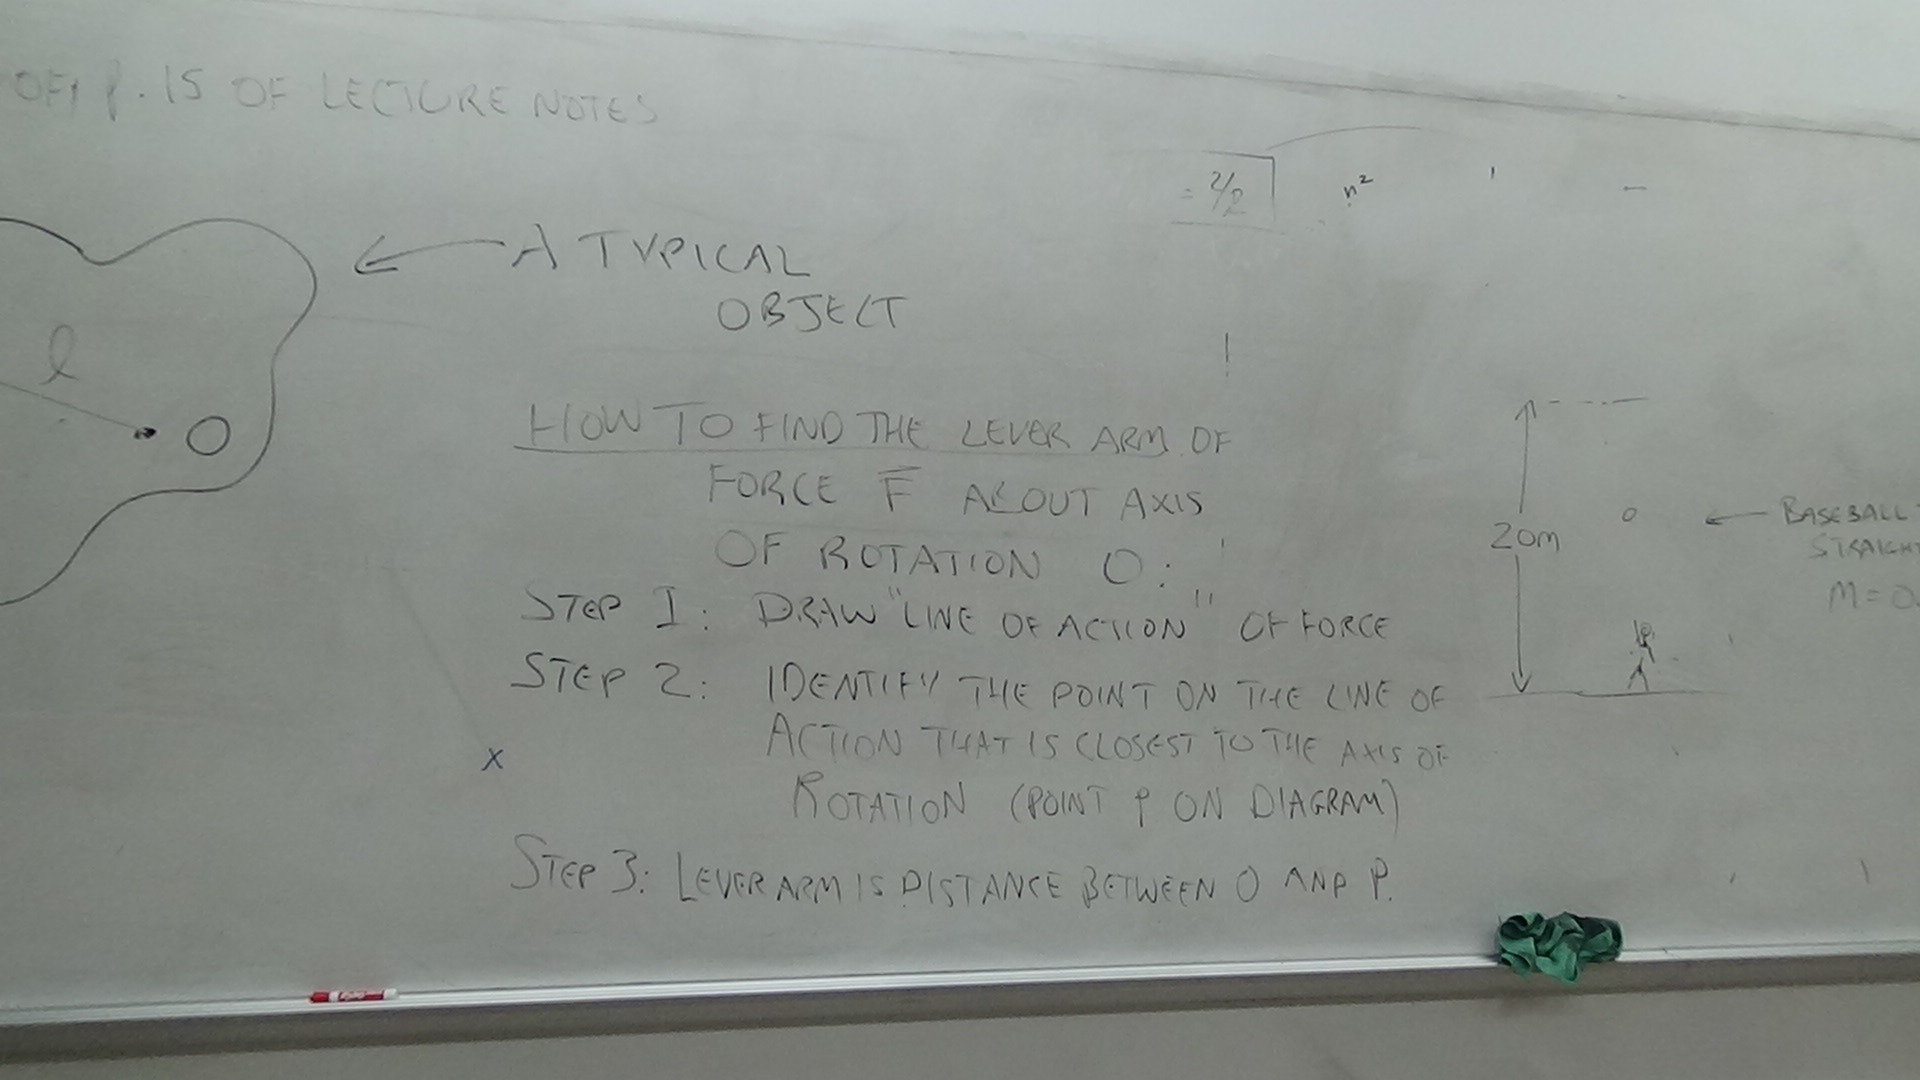 P. 15 OF LECTURE NOTES
A TYPICAL
OBJECT
l
O
HOW TO FIND THE LEVER ARM OF
FORCE F ABOUT AXIS
OF ROTATION O:
STEP 1: DRAW "LINE OF ACTION" OF FORCE
STEP 2: IDENTIFY THE POINT ON THE LINE OF
ACTION THAT IS CLOSEST TO THE AXIS OF
ROTATION (POINT P ON DIAGRAM)
STEP 3: LEVER ARM IS DISTANCE BETWEEN O AND P.
x
n²
20m
BASEBALL
M = 0.